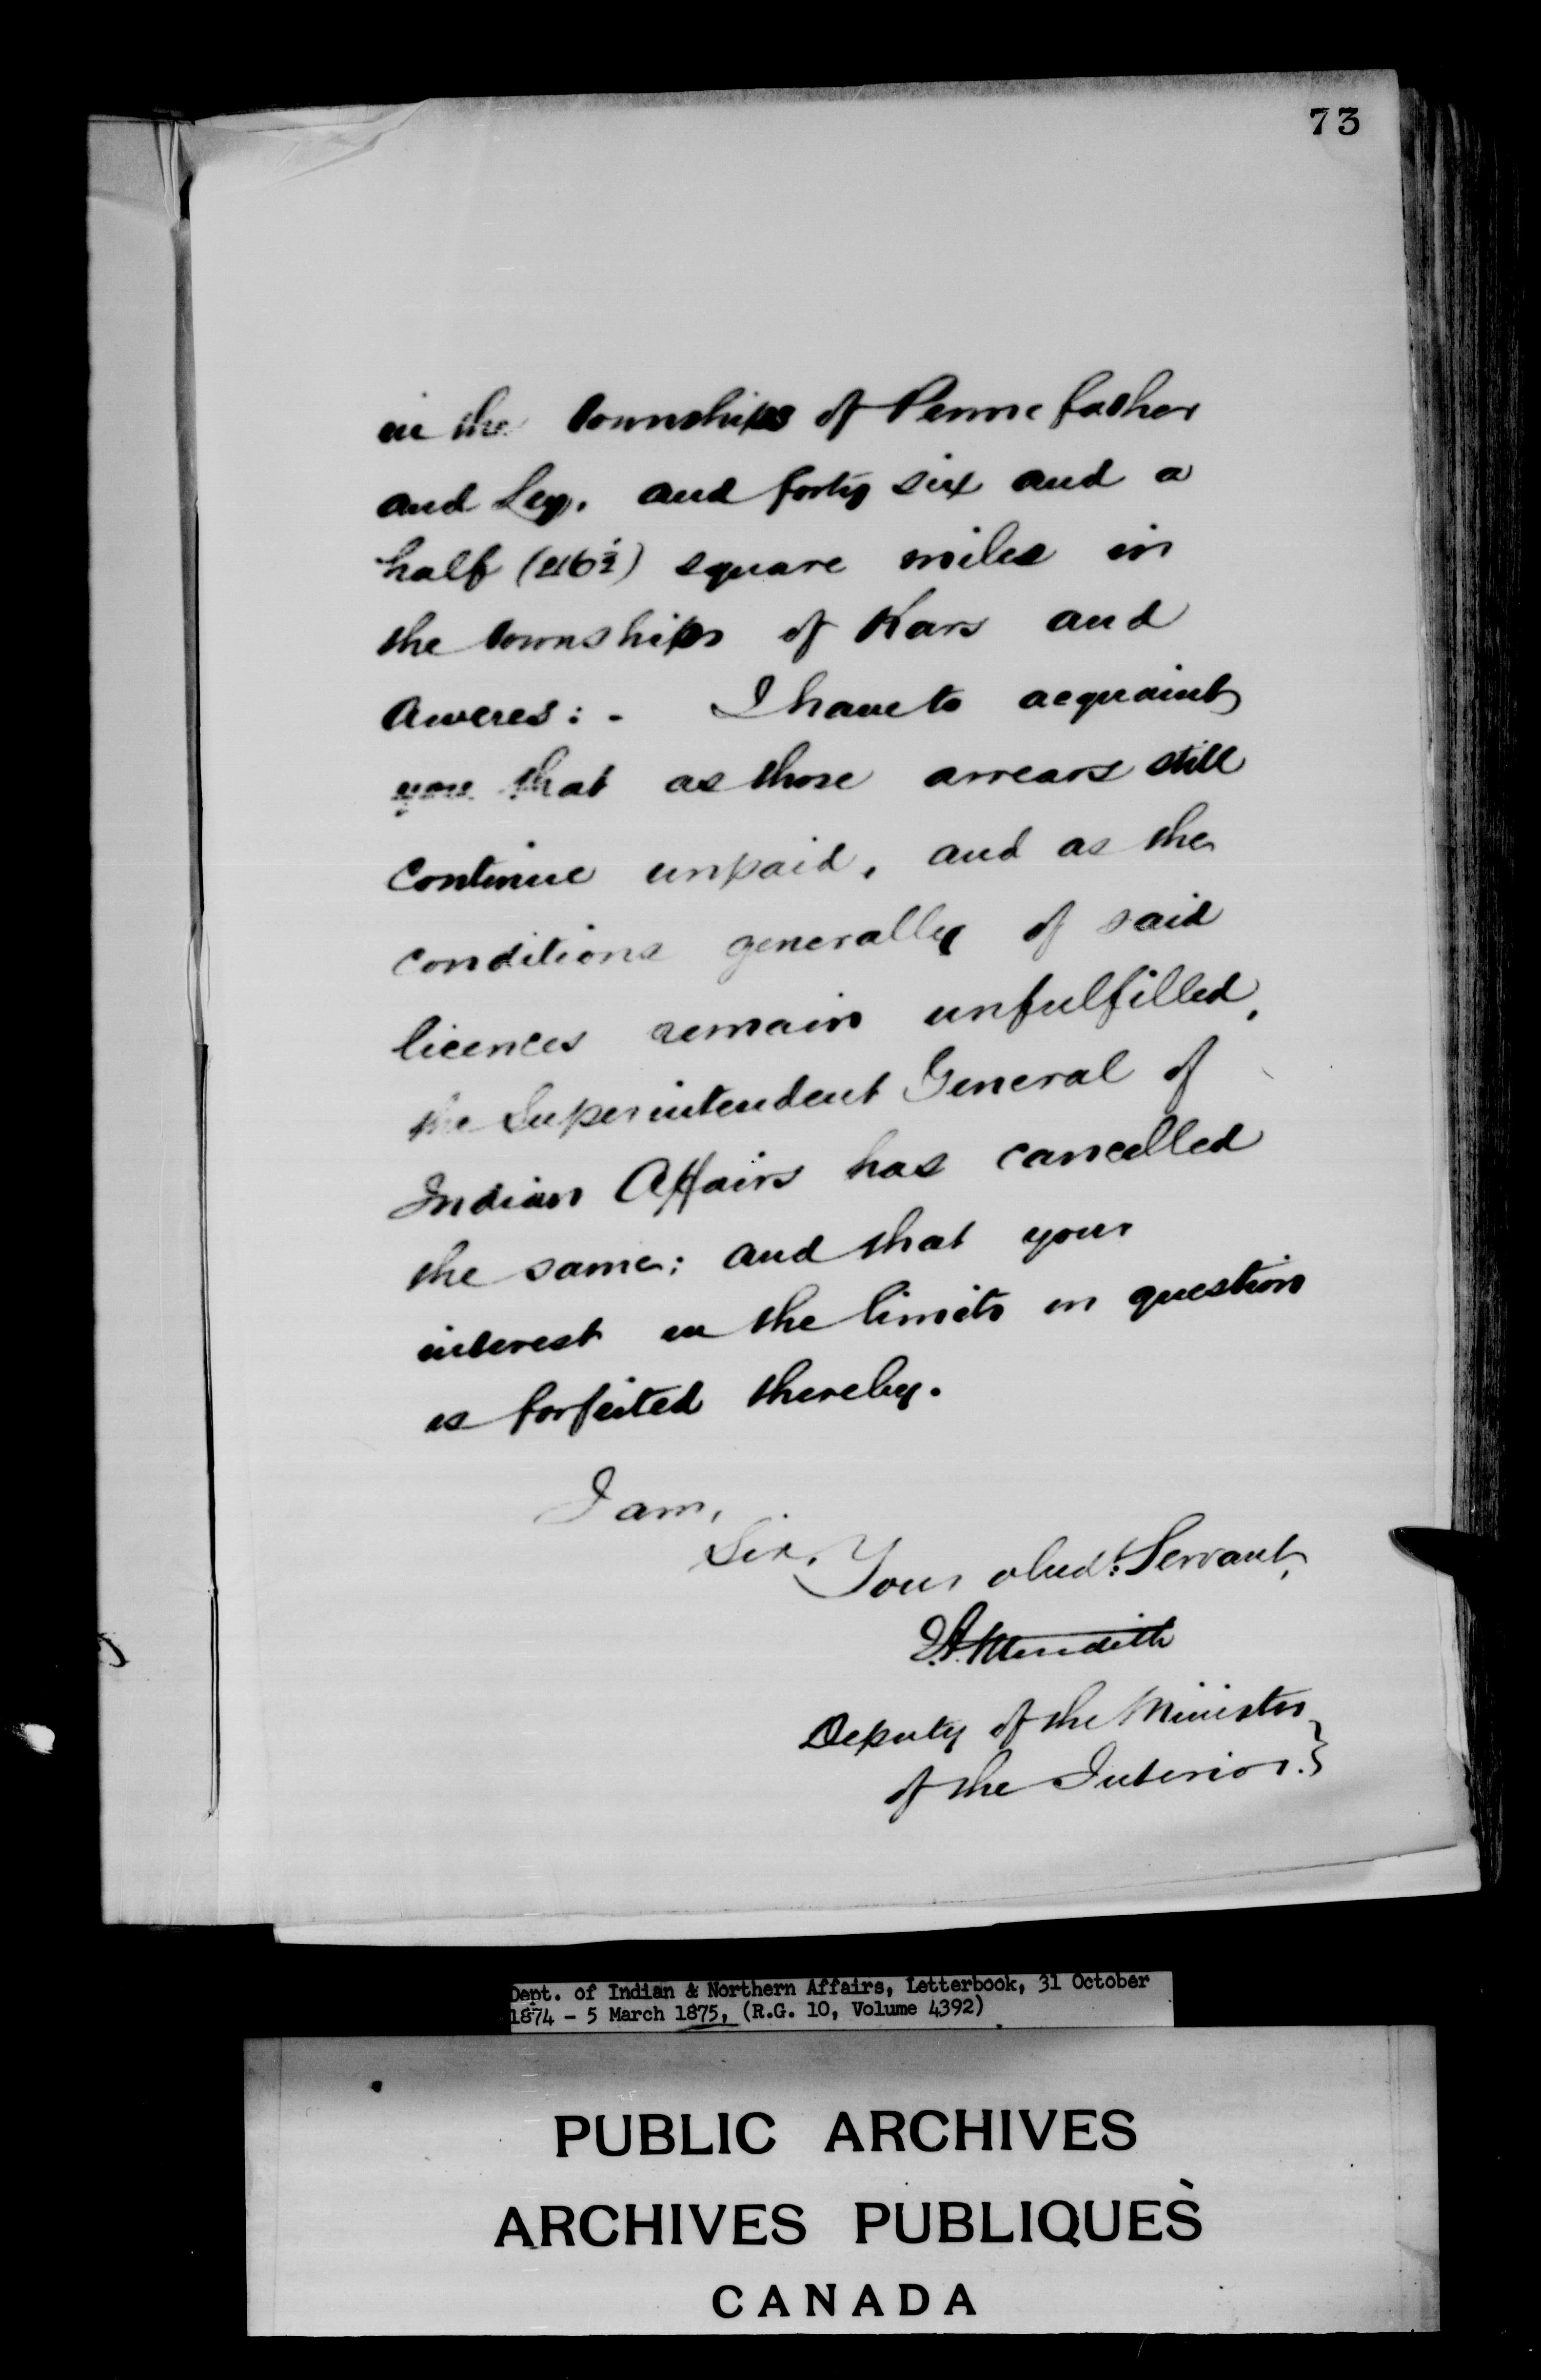 73
in the townships of Pennefather
and Ley, and forty six and a
half (46½) square miles in
the townships of Kars and
Aweres: - I have to acquaint
you that as those arrears still
continue unpaid, and as the
conditions generally of said
licences remain unfulfilled,
the Superintendent General of
Indian Affairs has cancelled
the same; and that your
interest in the limits in question
is forfeited thereby.
I am,
Sir,
Your obedt. Servant,
E.A. Meredith
Deputy of the Minister
of the Interior.}
Dept. of Indian & Northern Affairs, Letterbook, 31 October
1874 - 5 March 1875, (R.G. 10, Volume 4392)
PUBLIC ARCHIVES
ARCHIVES PUBLIQUES
CANADA